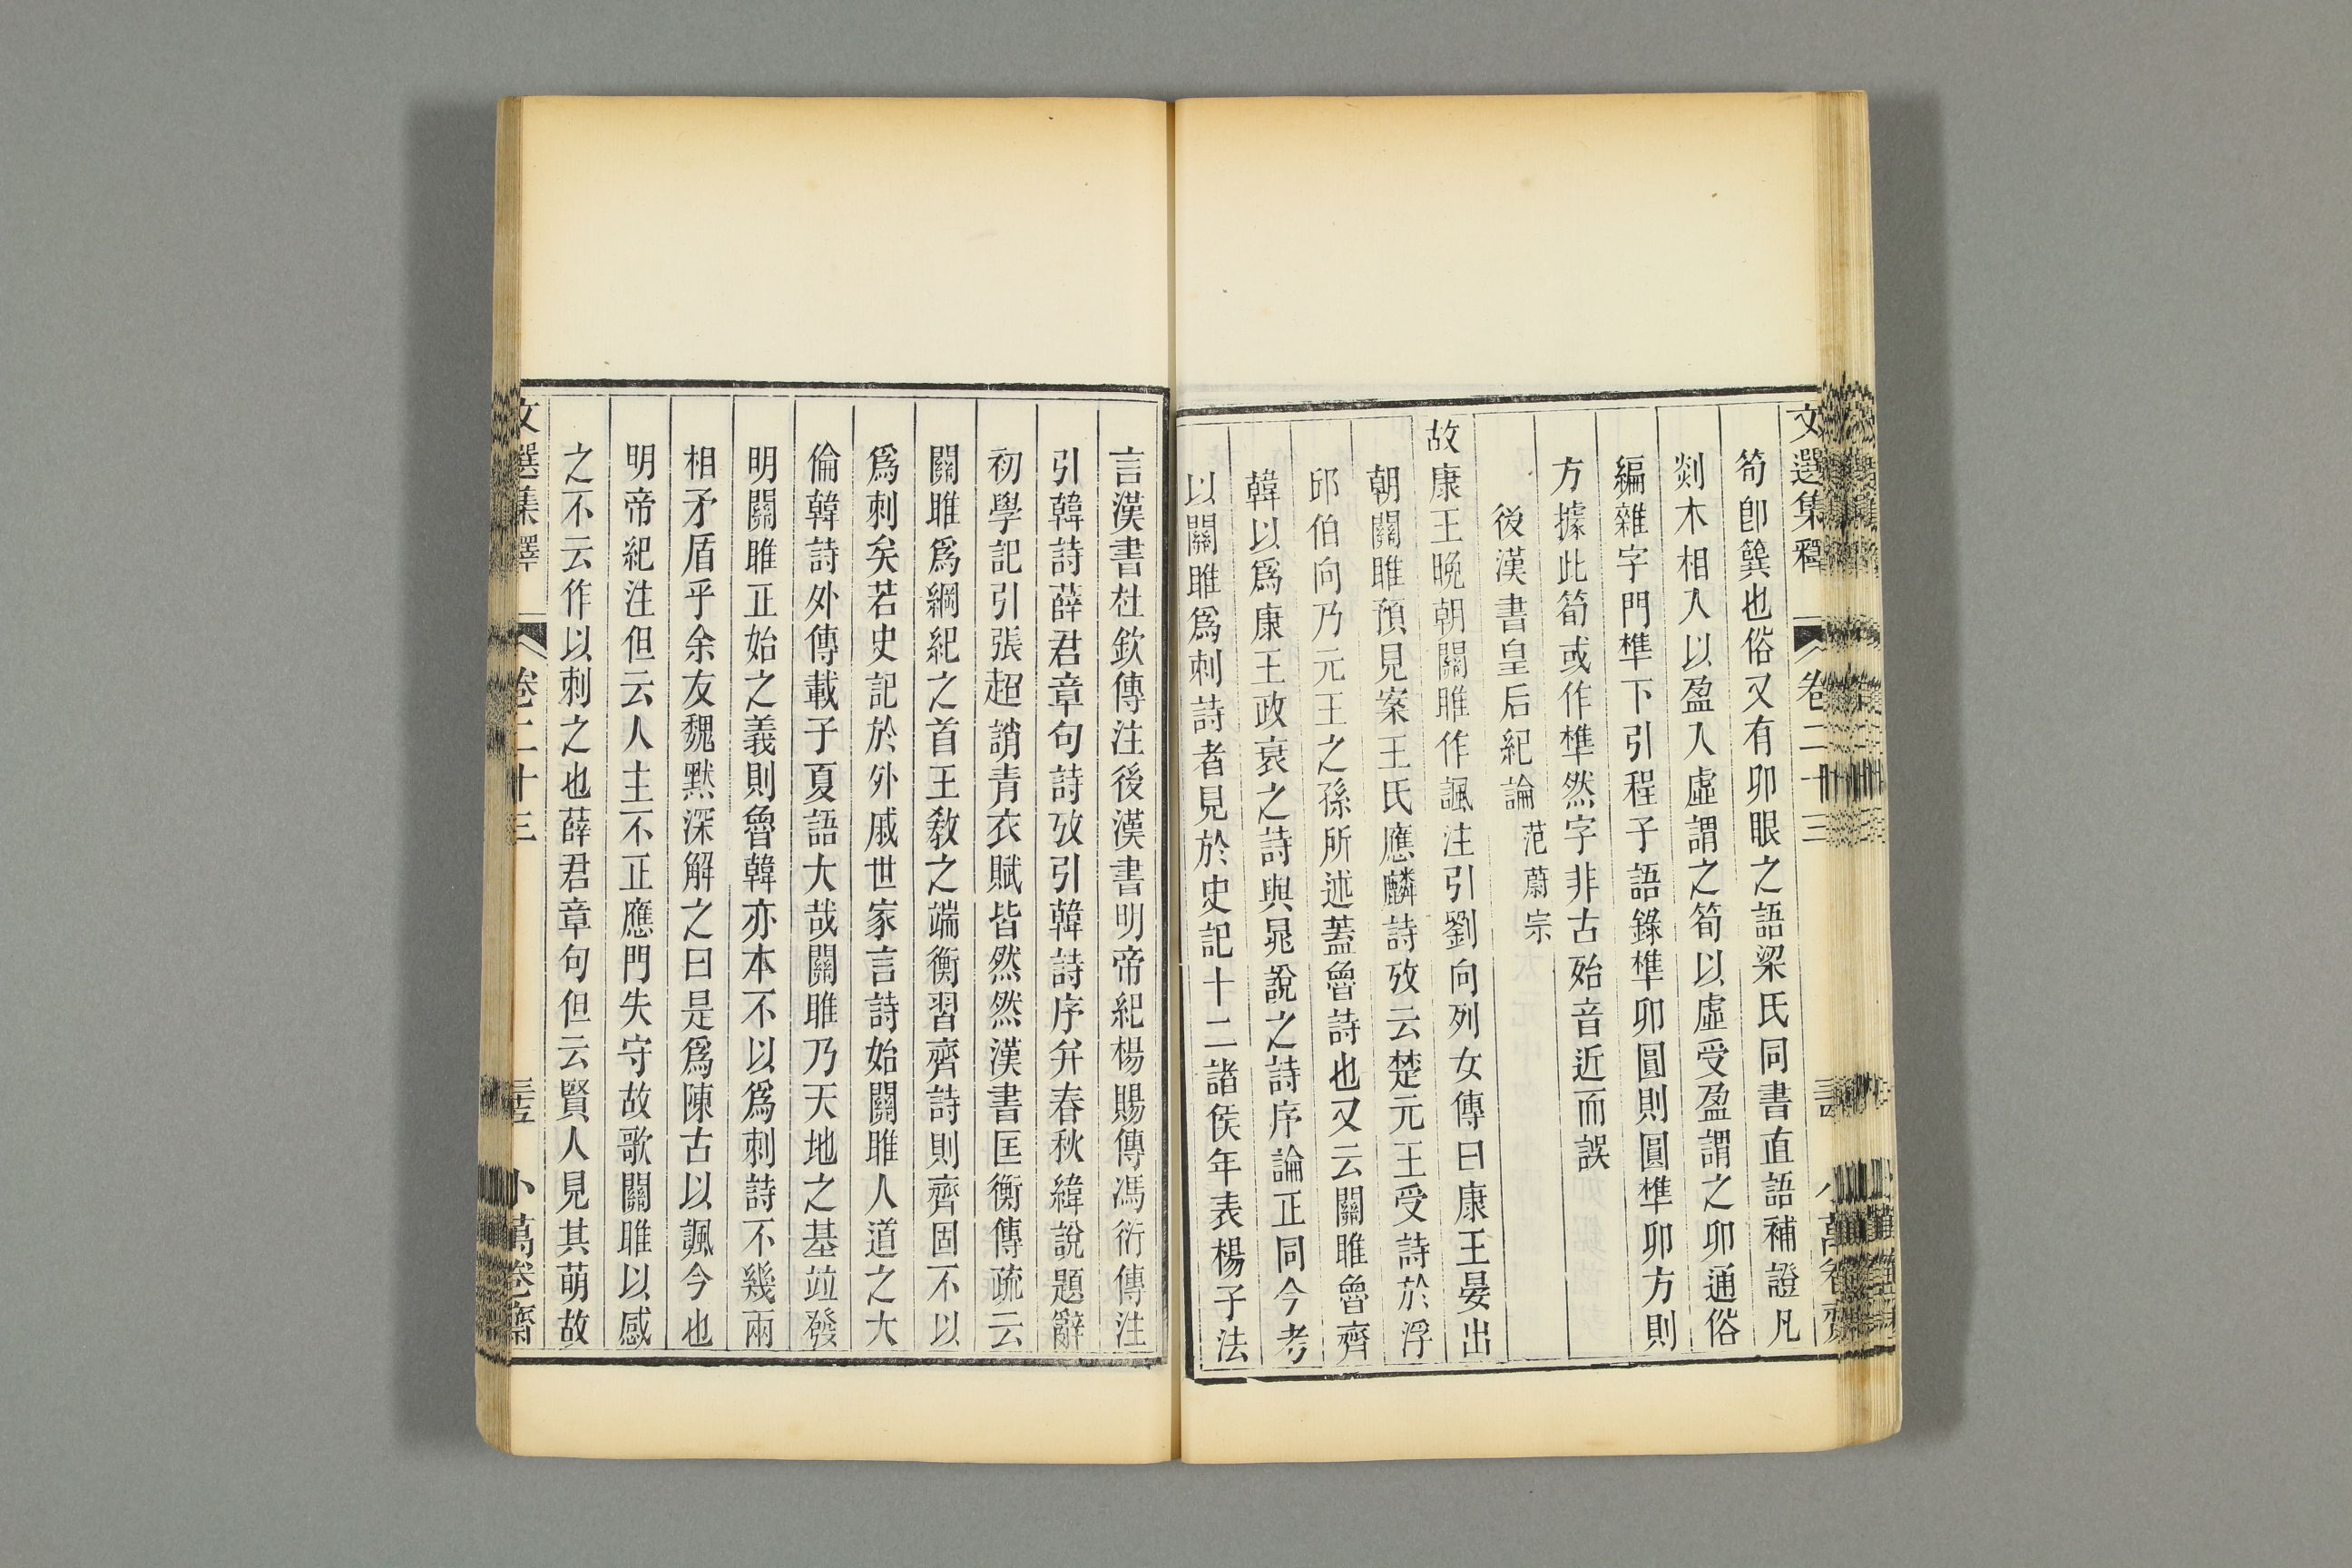 文選集釋 卷二十三
筍卽簨也俗又有卯眼之語梁氏同書直語補證凡
剡木相入以盈入虛謂之筍以虛受盈謂之卯通俗
編雜字門榫下引程子語錄榫卯圓則圓榫卯方則
方據此筍或作榫然字非古殆音近而誤
後漢書皇后紀論 范蔚宗
故康王晚朝關雎作諷注引劉向列女傳曰康王晏出
朝關雎預見案王氏應麟詩攷云楚元王受詩於浮
邱伯向乃元王之孫所述蓋魯詩也又云關雎魯齊
韓以爲康王政衰之詩與晁說之詩序論正同今考
以關雎爲刺詩者見於史記十二諸侯年表楊子法
言漢書杜欽傳注後漢書明帝紀楊賜傳馮衍傳注
引韓詩薛君章句詩攷引韓詩序幷春秋緯說題辭
初學記引張超誚青衣賦皆然然漢書匡衡傳疏云
關雎爲綱紀之首王敎之端衡習齊詩則齊固不以
爲刺矣若史記於外戚世家言詩始關雎人道之大
倫韓詩外傳載子夏語大哉關雎乃天地之基竝發
明關雎正始之義則魯韓亦本不以爲刺詩不幾兩
相矛盾乎余友魏默深解之曰是爲陳古以諷今也
明帝紀注但云人主不正應門失守故歌關雎以感
之不云作以刺之也薛君章句但云賢人見其萌故
文選集釋 卷二十三 三五 小萬卷齋